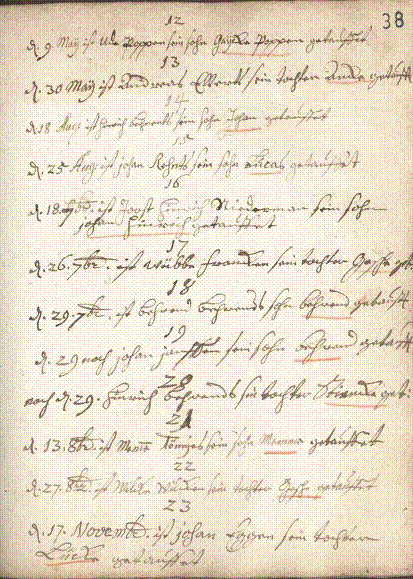 38
12
d. 9. May ist Ude Poppen sein sohn Poppen getauffet
13
d. 30 May ist Andreas Ellerts sein tochter Anke getaufft
14
d 18 Aug: ist Hinrich Behrents sein sohn Johan getauffet
15
d. 25 Aug: ist johan sein sohn Lucas getauffet
16
d. 18. 7br. ist Joost Hinrich Niederman sein sohn
johan Hinrich getauffet
17
d. 26. 7br. ist Wübbe Francken sein tochter Gesche get.
18
d. 29. 7br. ist behrend behrends sohn behrend getaufft
19
d. 29 noch johan janssen sein sohn behrend getaufft
20
noch d. 29. Hinrich behrends sein tochter get:
21
d. 13. 8br. ist Menne sein sohn Menne getauffet
22
d. 27. 8br. ist sein tochter Gesche getauffet
23
d. 17. Novembr. ist johan Eggen sein tochter
getauffet